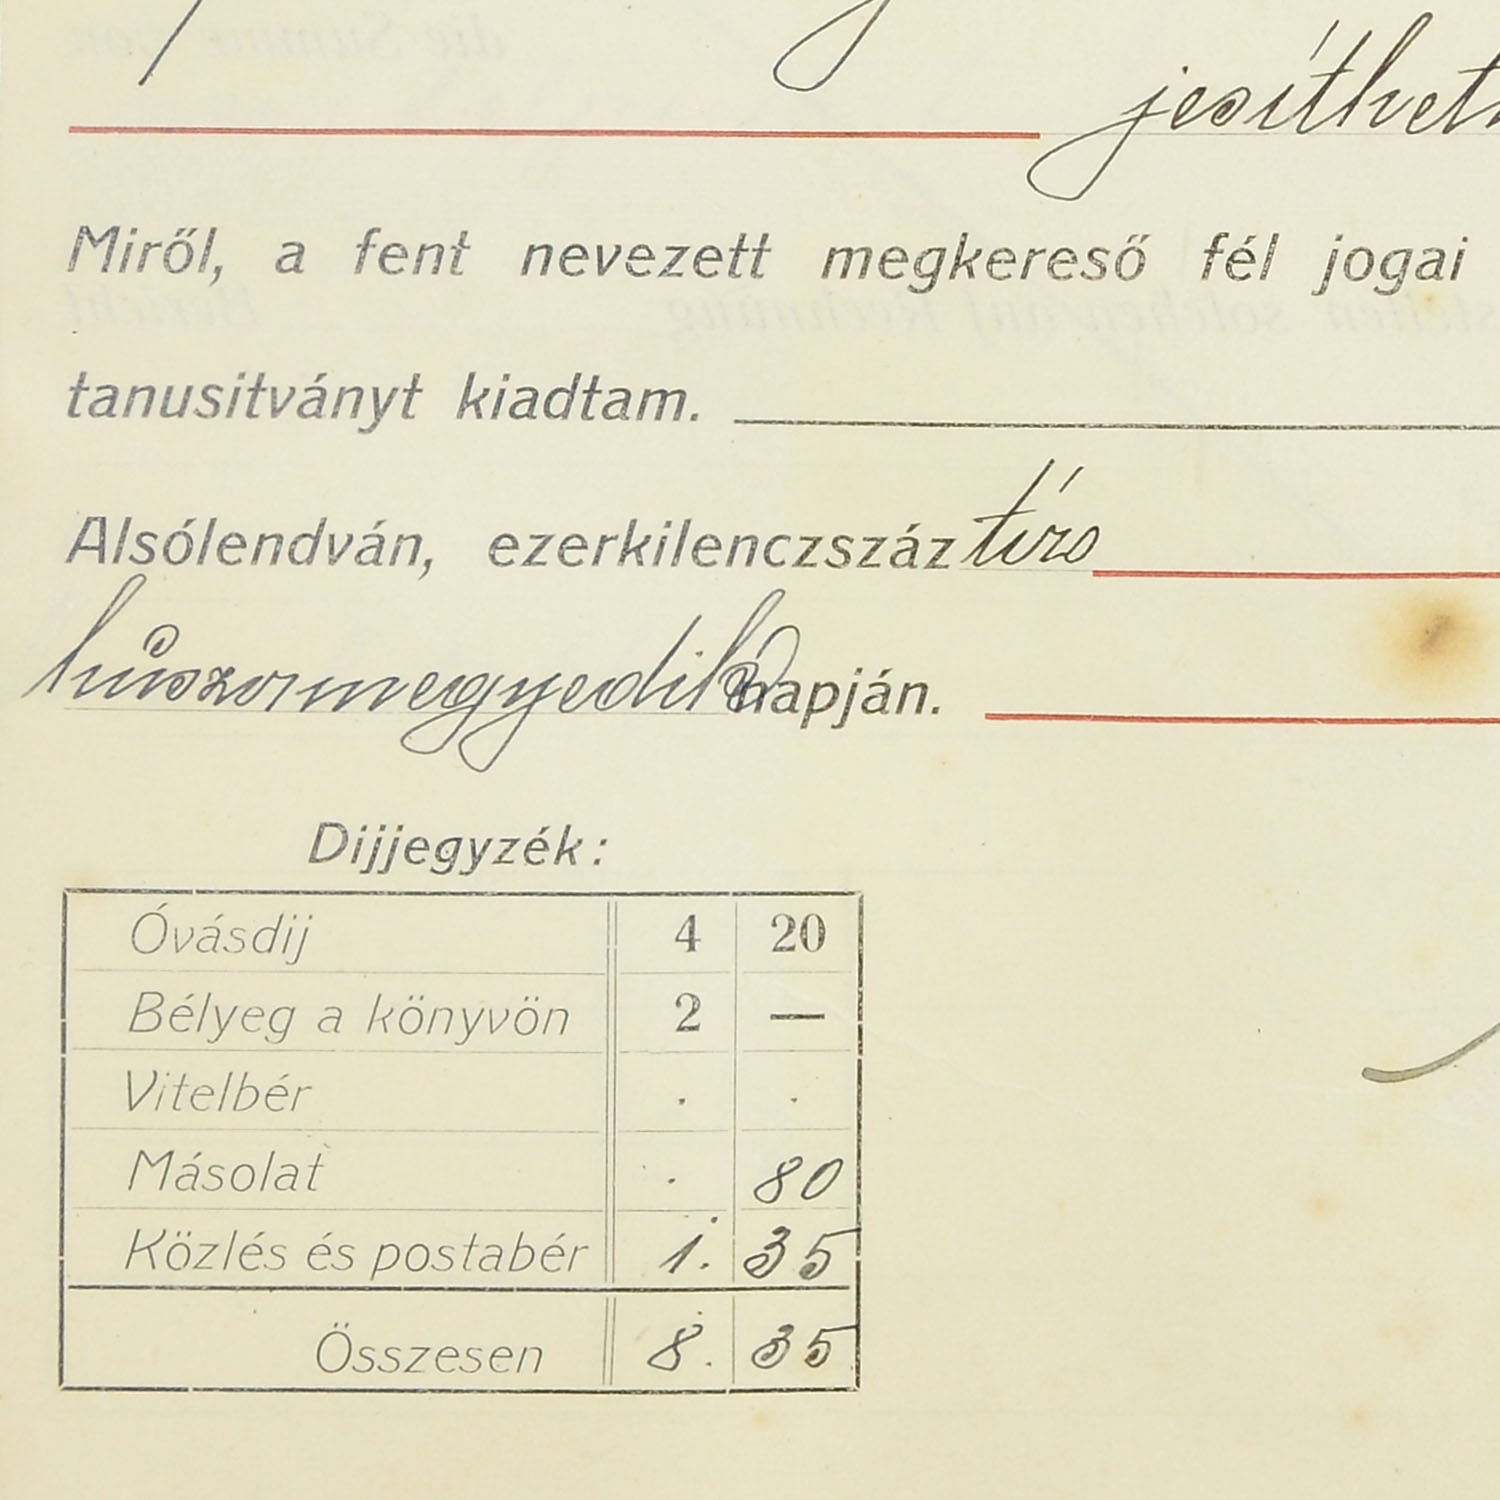 jesíthet
Miről, a fent nevezett megkereső fél jogai
tanusitványt kiadtam.
Alsólendván, ezerkilenczszáz tiz
huszonnegyedik napján.
Dijjegyzék:
Óvásdij 4 20
Bélyeg a könyvön 2 —
Vitelbér . .
Másolat . 80
Közlés és postabér 1. 35
Összesen 8. 35